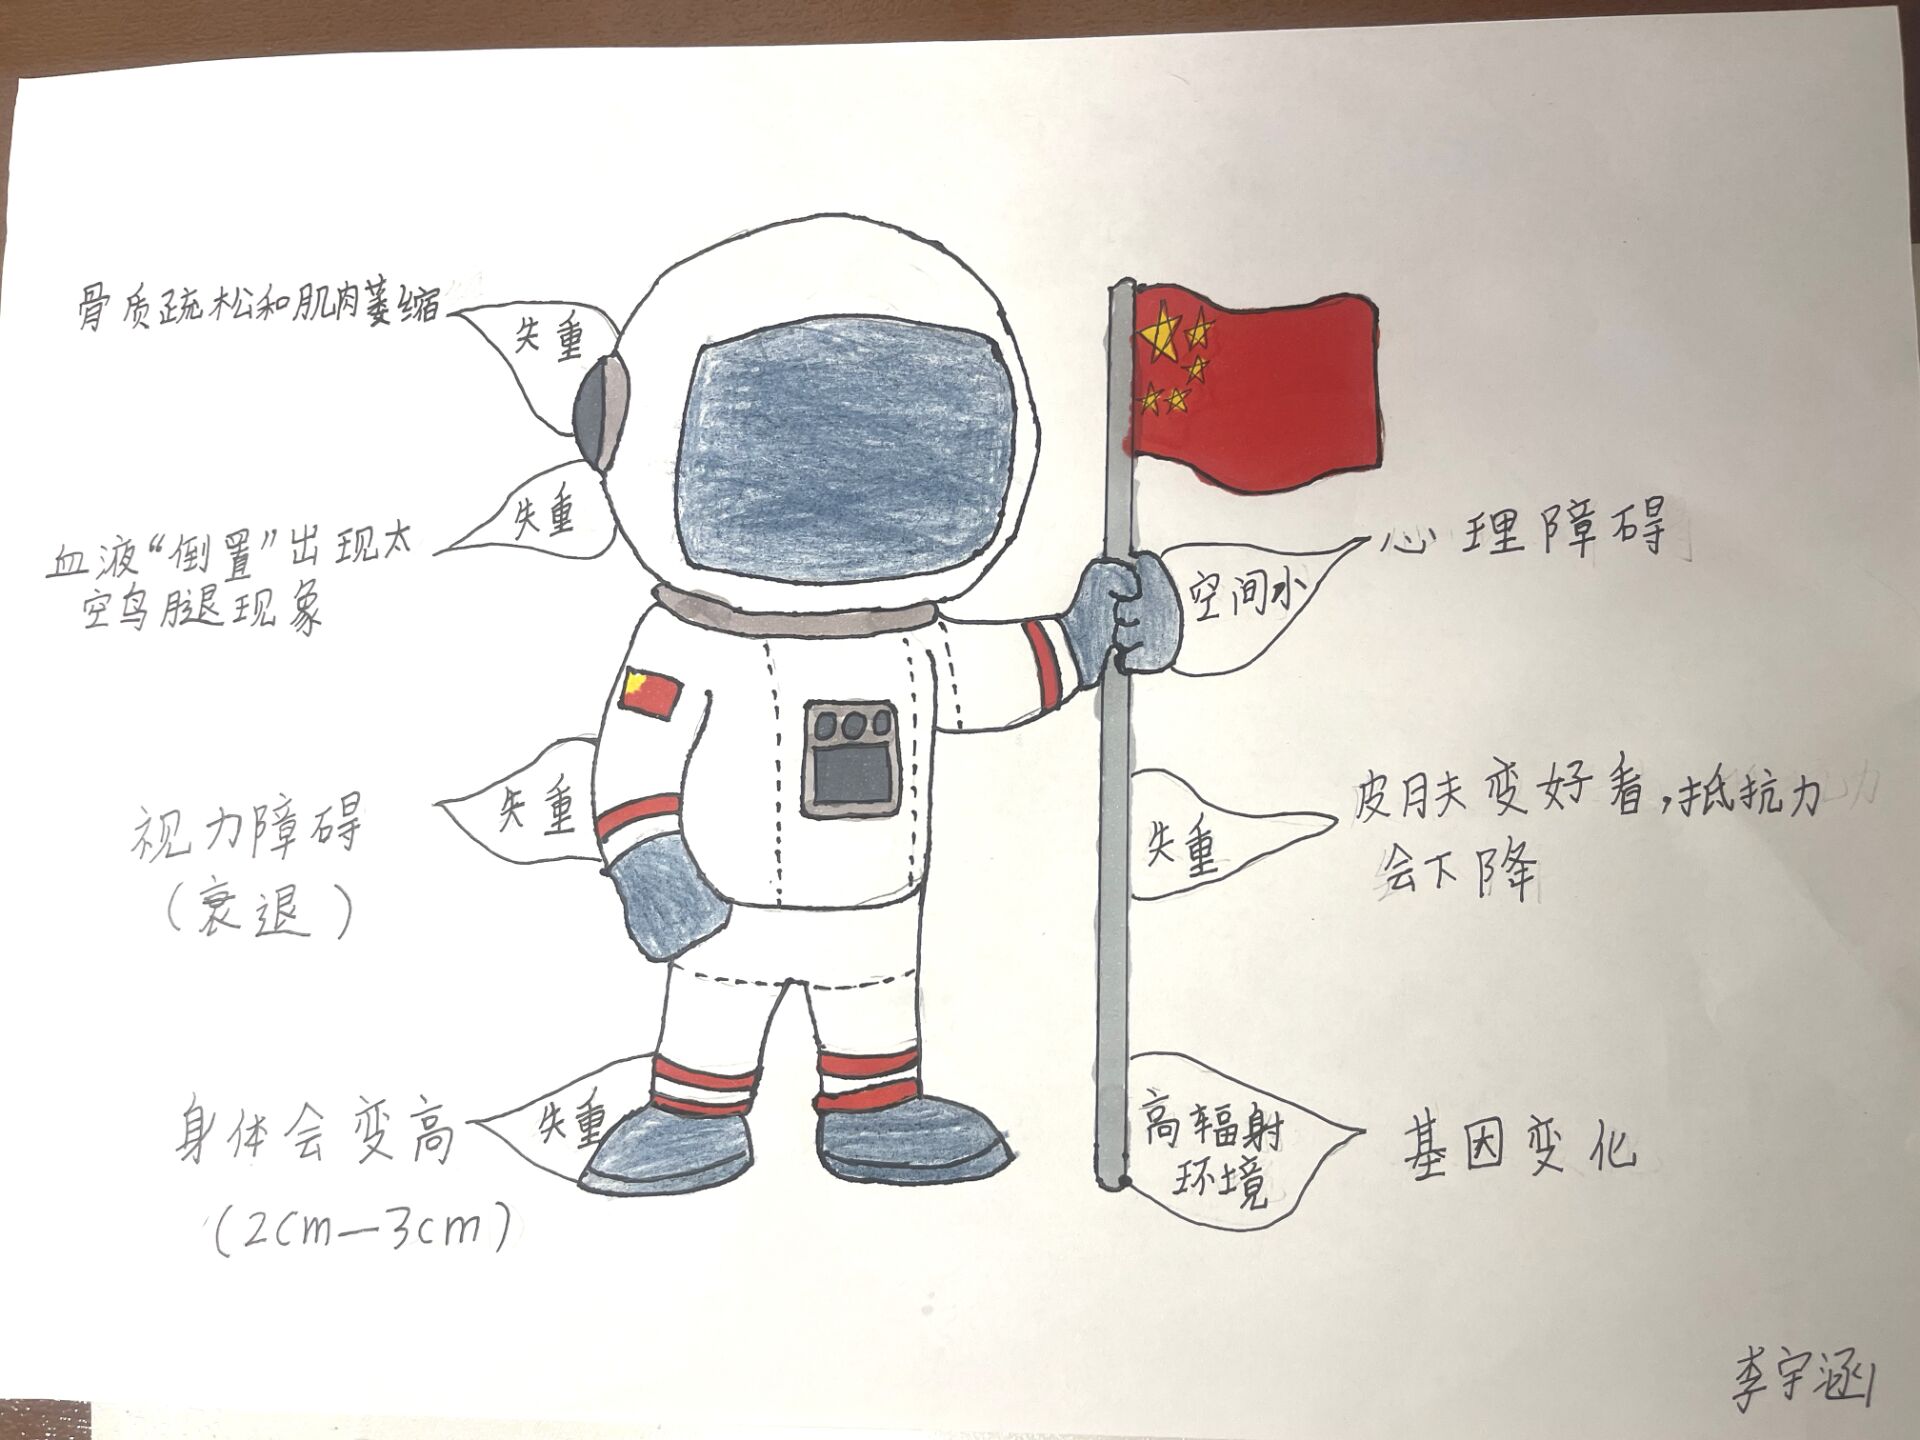 骨质疏松和肌肉萎缩
失重
血液“倒置”出现太
空鸟腿现象
失重
视力障碍
(衰退)
失重
身体会变高
(2cm—3cm)
失重
空间小
心理障碍
失重
皮肤变好看,抵抗力
会下降
高辐射
环境
基因变化
李宇涵